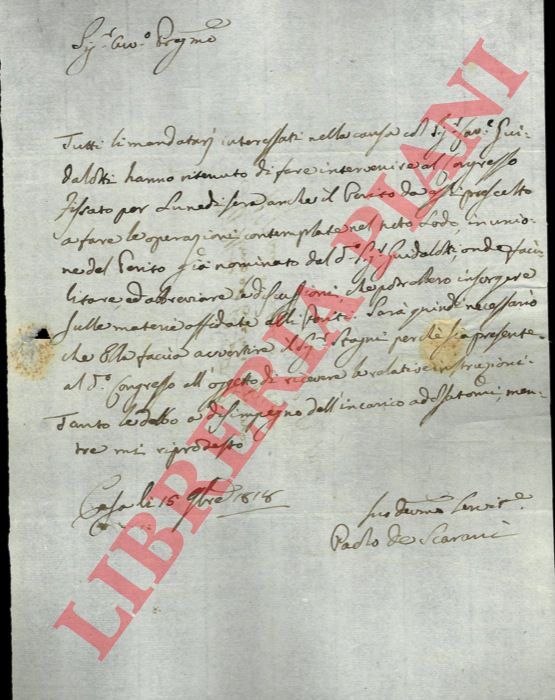 Sig.r Avv.o Preg.mo
Tutti li mandatarj interessati nella causa col Sig.r Cav.e Gui-
dalotti hanno ritenuto di fare intervenire al Congresso
fissato per Lunedi sera anche il Perito da essi prescelto
a fare le operazioni contemplate nel noto Lodo, in unio-
ne del Perito già nominato del d.o Sig.r Guidalotti, onde faci-
litare, ed abbreviare le discussioni, che potrebbero insorgere
sulle materie affidate alli Periti. Sarà quindi necessario
che Ella faccia avvertire il Sig.r Stagni perchè sia presente
al d.o Congresso all'oggetto di ricevere le relative instruzioni
Tanto le debbo a disimpegno dell'incarico addossatomi, men-
tre mi riprotesto
Casa li 15 9bre 1818
Suo Devmo Servit.e
Paolo de Scarani
LIBRERIA PIANI